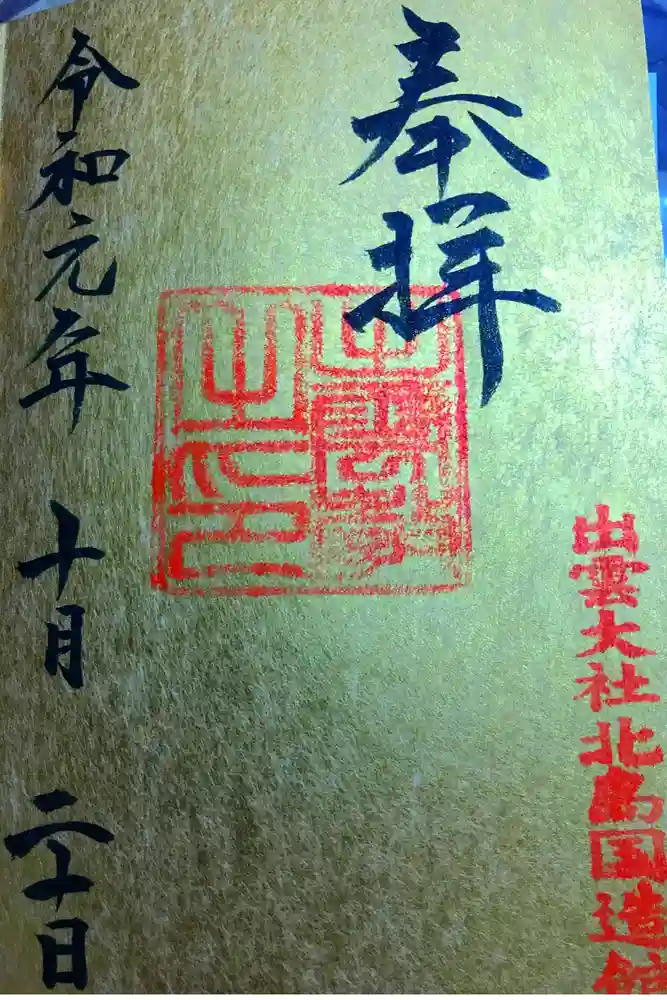 出雲大社北島国造館
奉拝
令和元年 十月 二十日